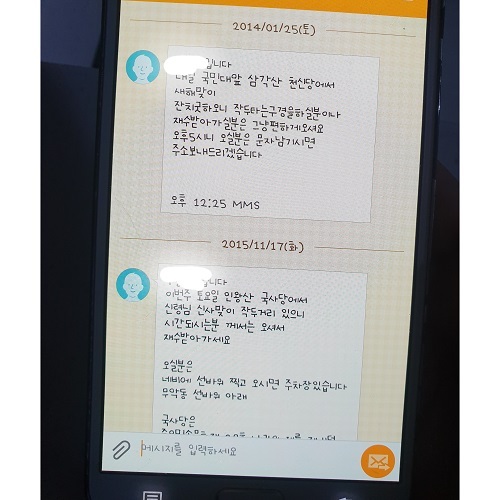 2014/01/25(토)
입니다
내일 국민대앞 삼각산 천신당에서
새해맞이
잔치굿하오니 작두타는구경을하실분이나
재수받아가실분은 그냥편하게오셔요
오후5시니 오실분은 문자남기시면
주소보내드리겠습니다
오후 12:25 MMS
2015/11/17(화)
니다
이번주 토요일 인왕산 국사당에서
신령님 신사맞이 작두거리 있으니
시간되시는분 께서는 오셔서
재수받아가세요
오실분은
네비에 선바위 찍고 오시면 주차장있습니다
무악동 선바위 아래
국사당은
메시지를 입력하세요